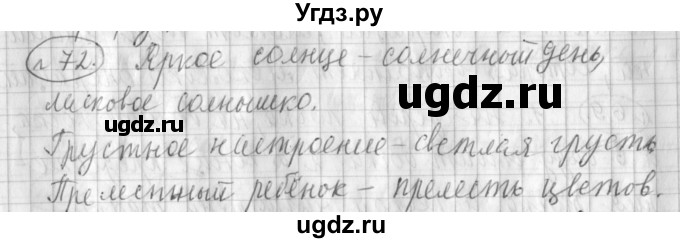 Угдз.ру
л 72. Яркое солнце – солнечный день,
ugdz.ru
ласковое солнышко.
ugdz.ru
Грустное настроение – светлая грусть
Прелестный ребёнок – прелесть цветов.
ugdz.ru